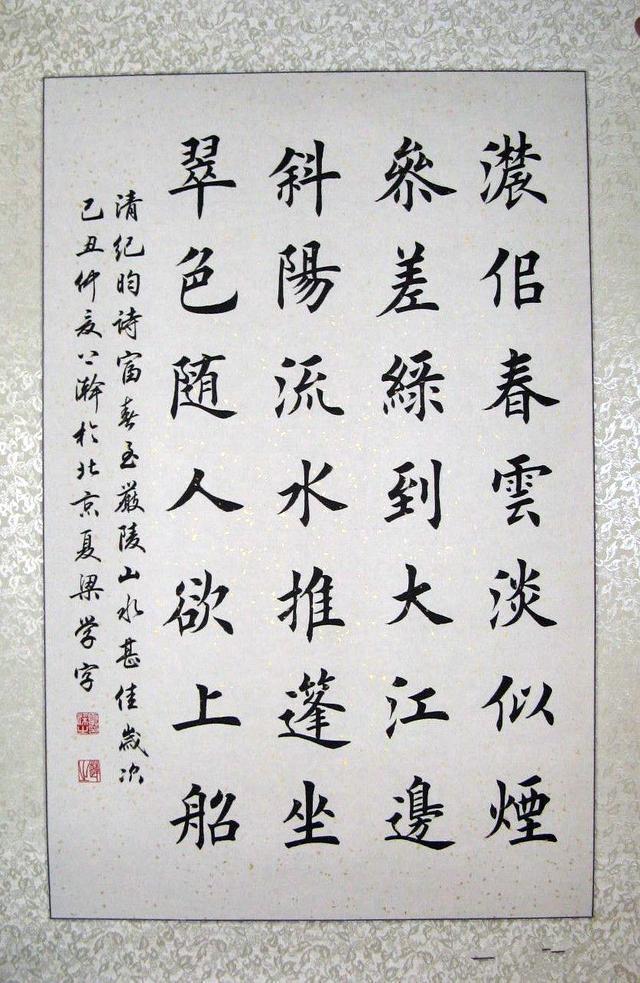 濃侣春雲淡似煙
參差綠到大江邊
斜陽流水推蓬坐
翠色随人欲上船
清纪昀詩富春至嚴陵山水甚佳歲次
己丑仲夏公瀚於北京夏梁学字